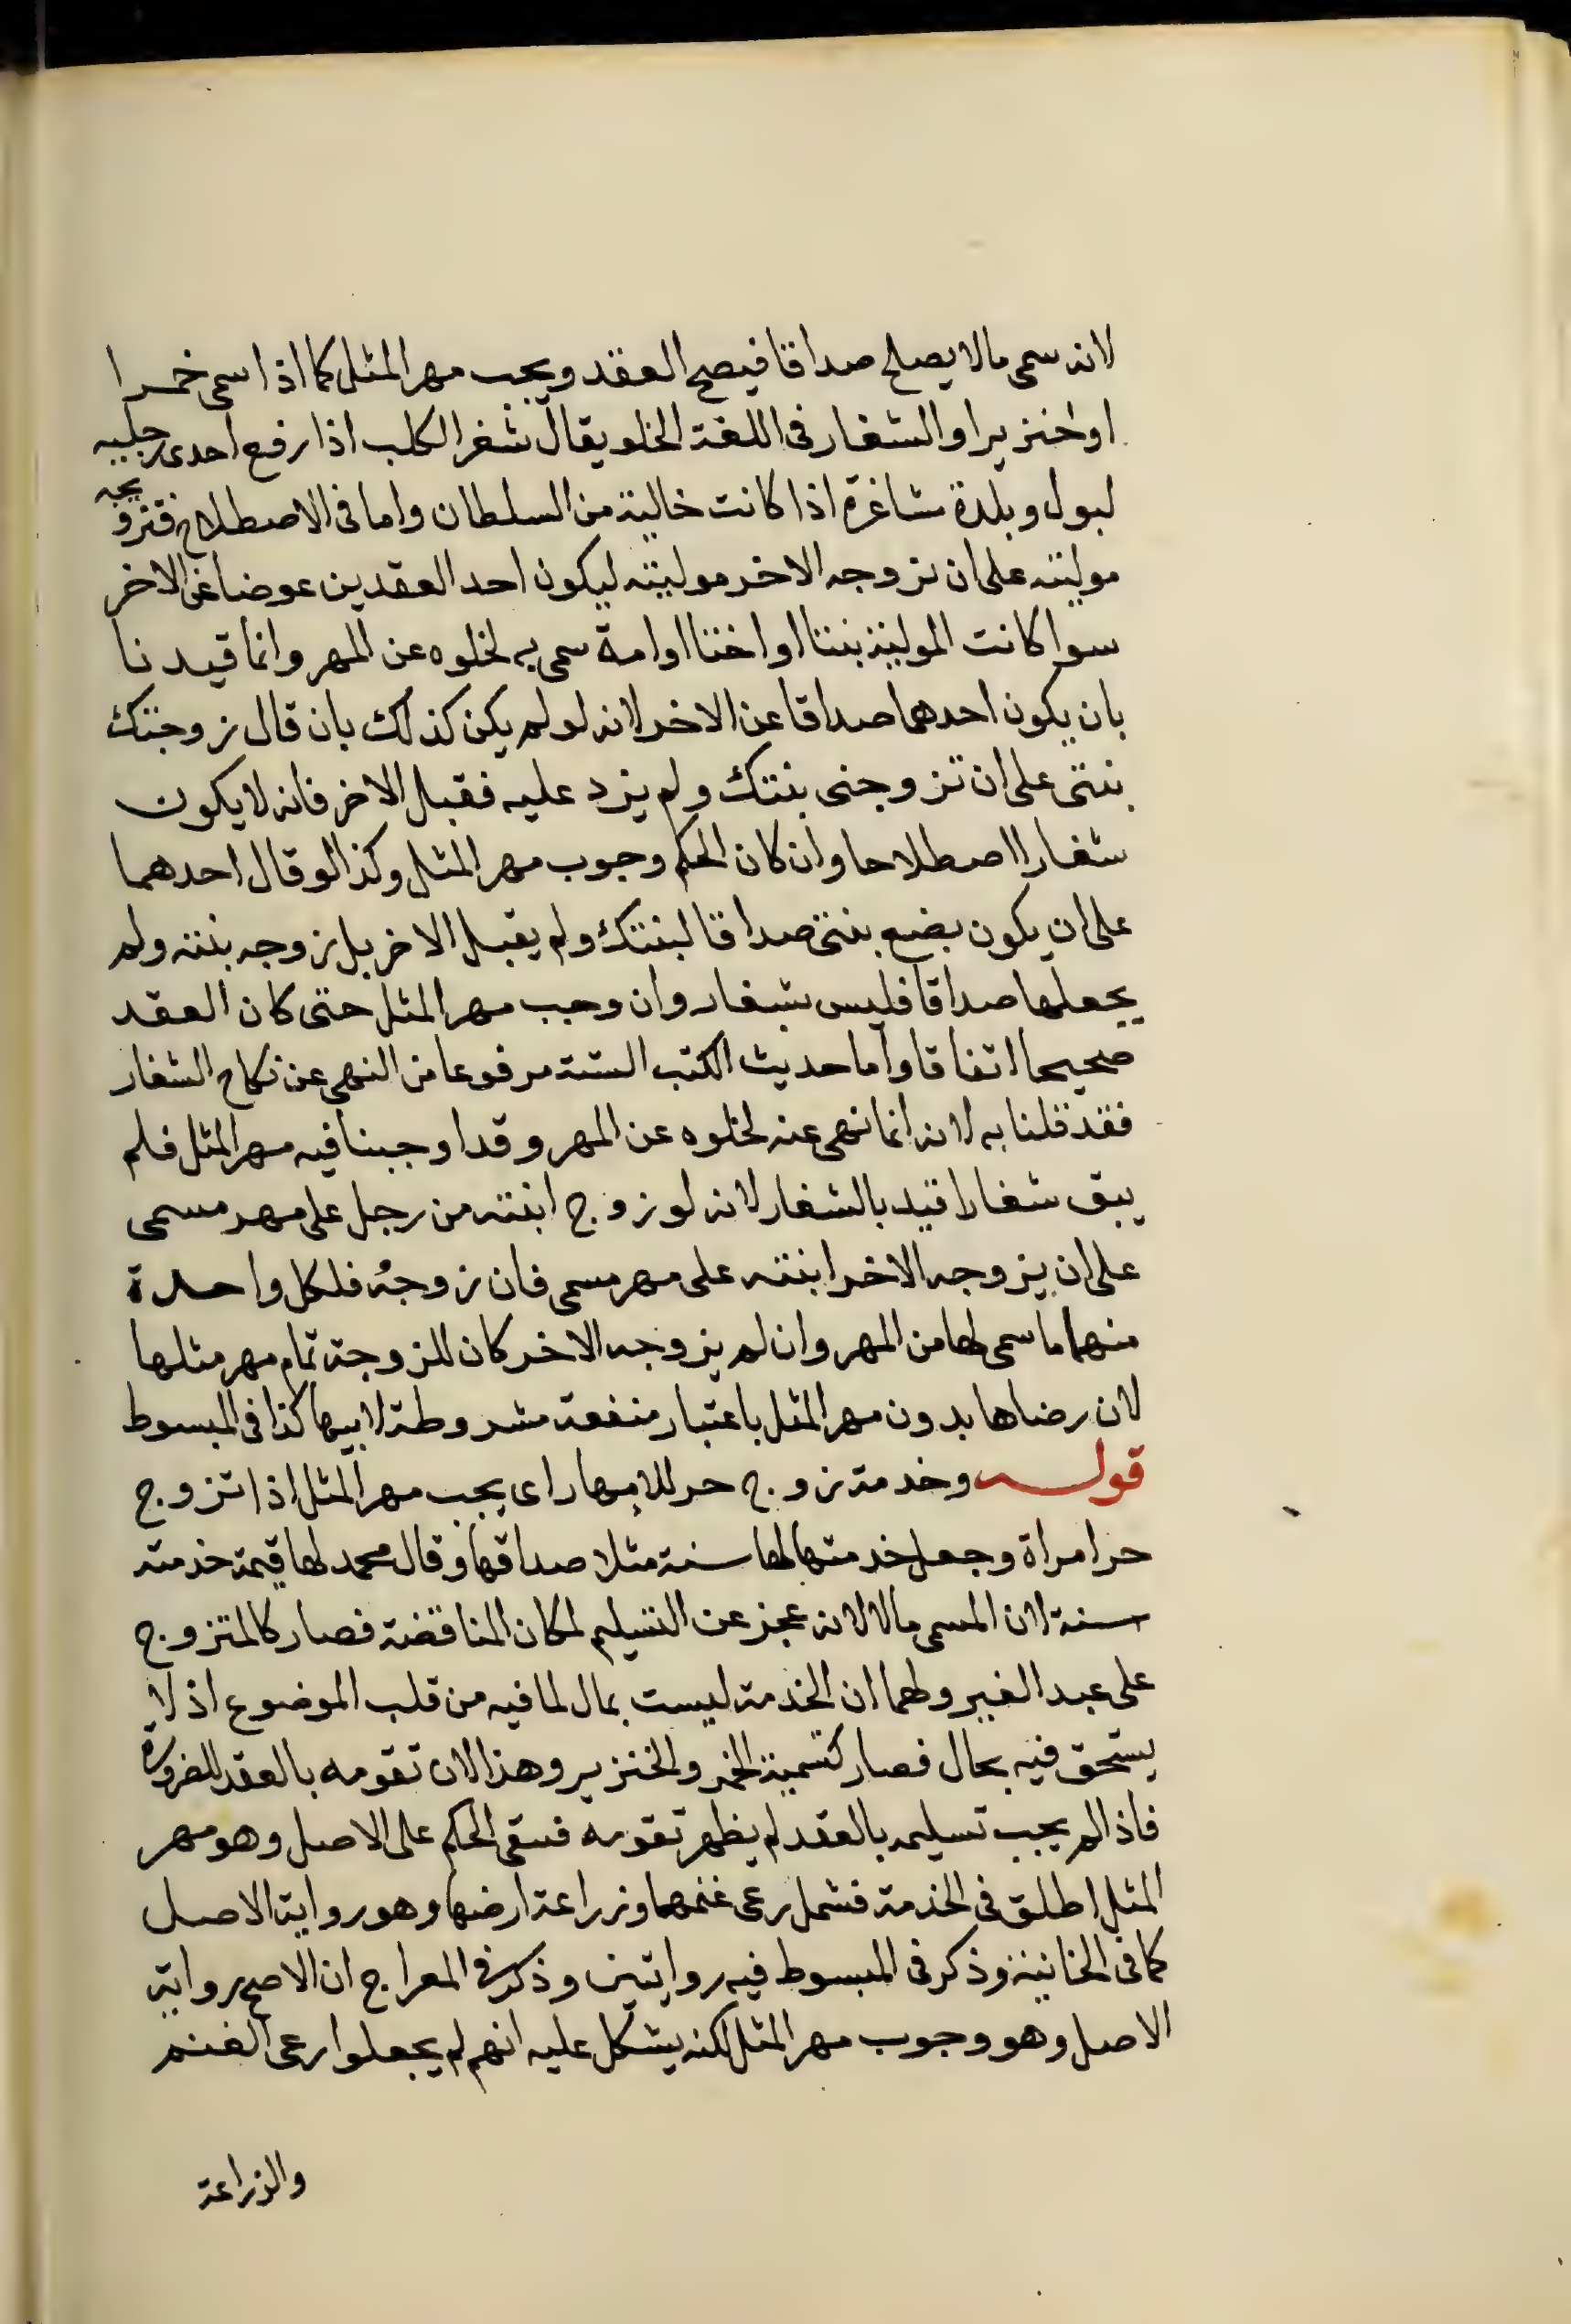 لانه سمى مالا يصلح صداقا فيصح العقد ويجب مهر المثل كما اذا سمى خمرا
او خنزيرا والشغار فى اللغة الخلو يقال شغر الكلب اذا رفع احدى رجليه
لبول وبلدة شاغرة اذا كانت خالية من السلطان واما فى الاصطلاح فتزويجه
موليته على ان يزوجه الاخر موليته ليكون احد العقدين عوضا عن الاخر
سوا كانت المولية بنتا او اختا او امة سمى به لخلوه عن المهر وانما قيدنا
بان يكون احدهما صداقا عن الاخر لانه لو لم يكن كذلك بان قال زوجتك
بنتى على ان تزوجنى بنتك ولم يزد عليه فقبل الاخر فانه لا يكون
شغارا اصطلاحا وان كان الحكم وجوب مهر المثل وكذا لو قال احدهما
على ان يكون بضع بنتى صداقا لبنتك ولم يقبل الاخر بل زوجه بنته ولم
يجعلها صداقا فليس بشغار وان وجب مهر المثل حتى كان العقد
صحيحا اتفاقا واما حديث الكتب الستة مرفوعا من النهى عن نكاح الشغار
فقد قلنا به لانه انما نهى عنه لخلوه عن المهر وقد اوجبنا فيه مهر المثل فلم
يبق شغارا قيد بالشغار لانه لو زوج ابنته من رجل على مهر مسمى
على ان يزوجه الاخر ابنته على مهر مسمى فان زوجه فلكل واحدة
منهما ما سمى لها من المهر وان لم يزوجه الاخر كان للزوجة تمام مهر مثلها
لان رضاها بدون مهر المثل باعتبار منفعة مشروطة لابيها كذا فى المبسوط
قوله وخدمة زوج حر للامهار اى يجب مهر المثل اذا تزوج
حر امراة وجعل خدمتها لها سنة مثلا صداقها وقال محمد لها قيمة خدمته
سنة لان المسمى مالا لانه عجز عن التسليم لمكان المناقضة فصار كالمتزوج
على عبد الغير ولهما ان الخدمة ليست بمال لما فيه من قلب الموضوع اذ لا
يستحق فيه بحال فصار كتسمية الخمر والخنزير وهذا لان تقومه بالعقد للضرورة
فاذا لم يجب تسليمه بالعقد لم يظهر تقومه فبقى الحكم على الاصل وهو مهر
المثل اطلق فى الخدمة فشمل رعى غنمها وزراعة ارضها وهو رواية الاصل
كما فى الخانية وذكر فى المبسوط فيه روايتين وذكر فى المعراج ان الاصح رواية
الاصل وهو وجوب مهر المثل لكنه يشكل عليه انهم لم يجعلوا رعى الغنم
والزراعة